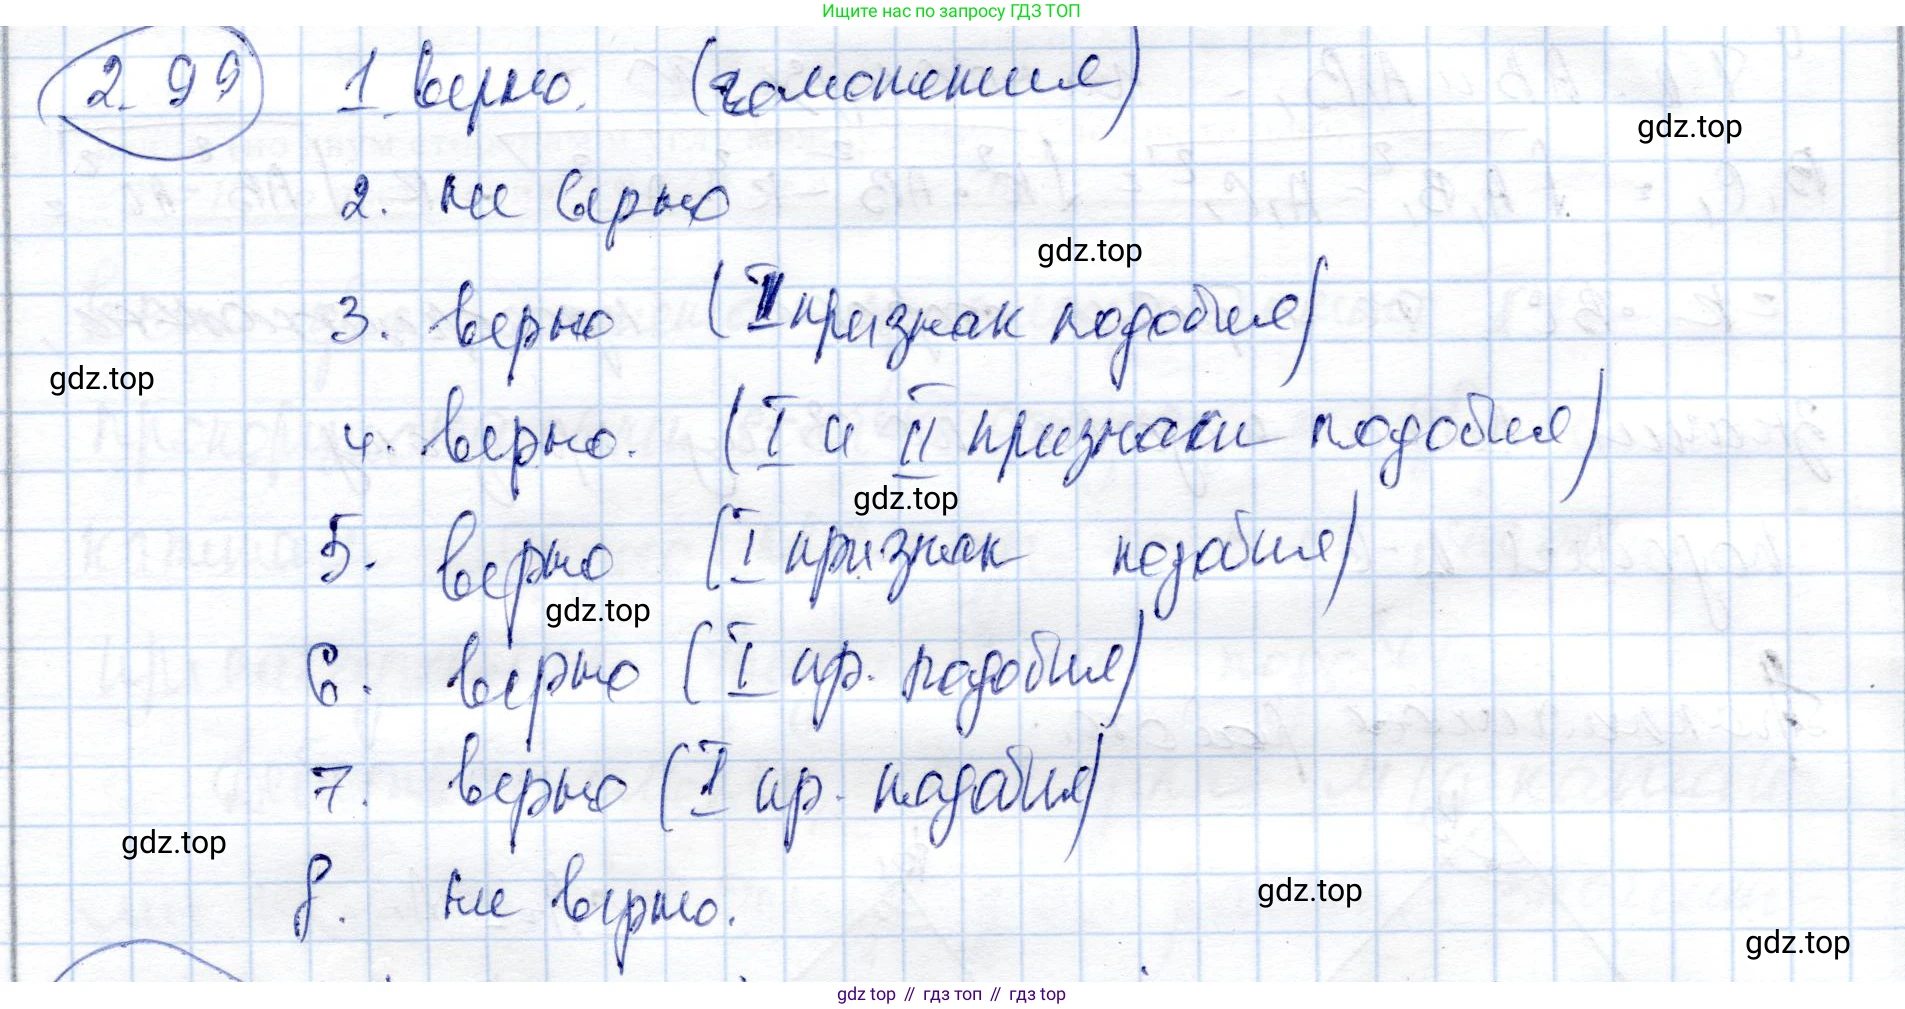 Ищите нас по запросу ГДЗ ТОП
2.99 1. верно. (гомотетия)
gdz.top
2. не верно
gdz.top
3. верно (II признак подобия)
gdz.top
4. верно. (I и II признаки подобия)
gdz.top
5. верно (I признак подобия)
gdz.top
6. верно (I пр. подобия)
7. верно (I пр. подобия)
gdz.top
8. не верно.
gdz.top
gdz.top
gdz top // гдз топ // гдз top